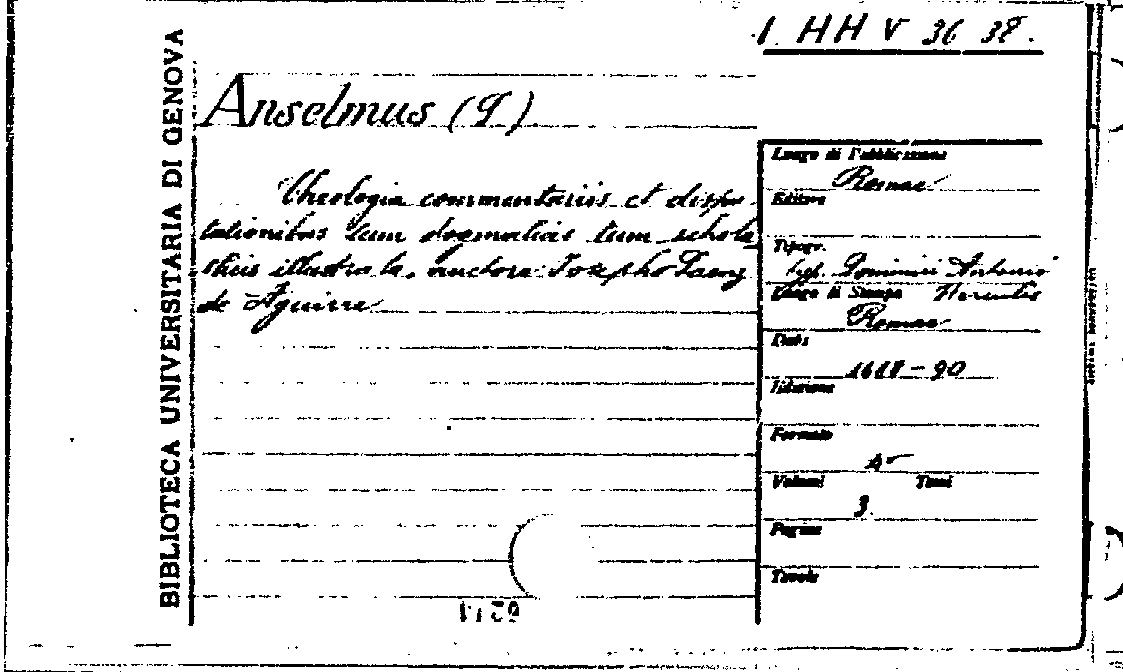 1 HH V 36 38.
BIBLIOTECA UNIVERSITARIA DI GENOVA
Anselmus (S).
Theologia commentariis et dispu-
tationibus tum dogmaticis tum schola
sticis illustrata, auctore Josepho Saenz
de Aguirre
Luogo di Pubblicazione
Romae
Editore
Tipogr.
typ. Dominici Antonii
Luogo di Stampa Herculis
Romae
Data
1688-90
Edizione
Formato
4°
Volumi Tomi
3.
Pagine
Tavole